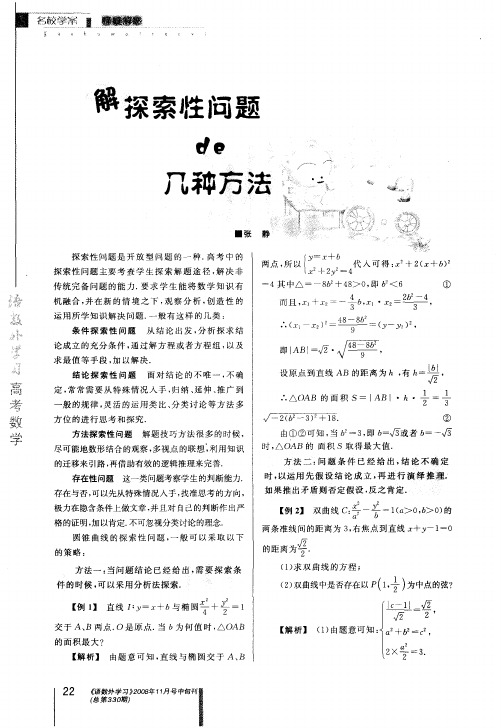 名校学案
解探索性问题
de
几种方法
■张 静
探索性问题是开放型问题的一种.高考中的
探索性问题主要考查学生探索解题途径,解决非
传统完备问题的能力.要求学生能将数学知识有
机融合,并在新的情境之下,观察分析,创造性的
运用所学知识解决问题.一般有这样的几类:
条件探索性问题 从结论出发,分析探求结
论成立的充分条件,通过解方程或者方程组,以及
求最值等手段,加以解决.
结论探索性问题 面对结论的不唯一,不确
定,常常需要从特殊情况入手,归纳、延伸、推广到
一般的规律,灵活的运用类比、分类讨论等方法多
方位的进行思考和探究.
方法探索性问题 解题技巧方法很多的时候,
尽可能地数形结合的观察,多视点的联想,利用知识
的迁移来引路,再借助有效的逻辑推理来完善.
存在性问题 这一类问题考察学生的判断能力.
存在与否,可以先从特殊情况入手,找准思考的方向,
极力在隐含条件上做文章,并且对自己的判断作出严
格的证明,加以肯定.不可忽视分类讨论的理念.
圆锥曲线的探索性问题,一般可以采取以下
的策略:
方法一:当问题结论已经给出,需要探索条
件的时候,可以采用分析法探索.
【例1】 直线 l:y=x+b与椭圆x²/4+y²/2=1
交于A、B两点.O是原点.当b为何值时,△OAB
的面积最大?
【解析】 由题意可知,直线与椭圆交于A、B
两点,所以{y=x+b x²+2y²=4 代入可得:x²+2(x+b)²
=4 其中△=-8b²+48>0,即b²<6 ①
而且,x₁+x₂=-4/3b,x₁·x₂=(2b²-4)/3,
∴(x₁-x₂)²=(48-8b²)/9=(y₁-y₂)²,
即|AB|=√2·√((48-8b²)/9),
设原点到直线AB的距离为h,有h=|b|/√2,
∴△OAB的面积S=|AB|·h·1/2=1/3
√(-2(b²-3)²+18). ②
由①②可知,当b²=3,即b=√3或者b=-√3
时,△OAB的面积S取得最大值.
方法二:问题条件已经给出,结论不确定
时,以运用先假设结论成立,再进行演绎推理.
如果推出矛盾则否定假设,反之肯定.
【例2】 双曲线C:x²/a²-y²/b²=1(a>0,b>0)的
两条准线间的距离为3,右焦点到直线x+y-1=0
的距离为√2/2.
(1)求双曲线的方程;
(2)双曲线中是否存在以P(1,1/2)为中点的弦?
【解析】 (1)由题意可知:{|c-1|/√2=√2/2, a²+b²=c², 2×a²/c=3.
语数外学习
高考数学
22
《语数外学习》2008年11月号中旬刊
(总第330期)